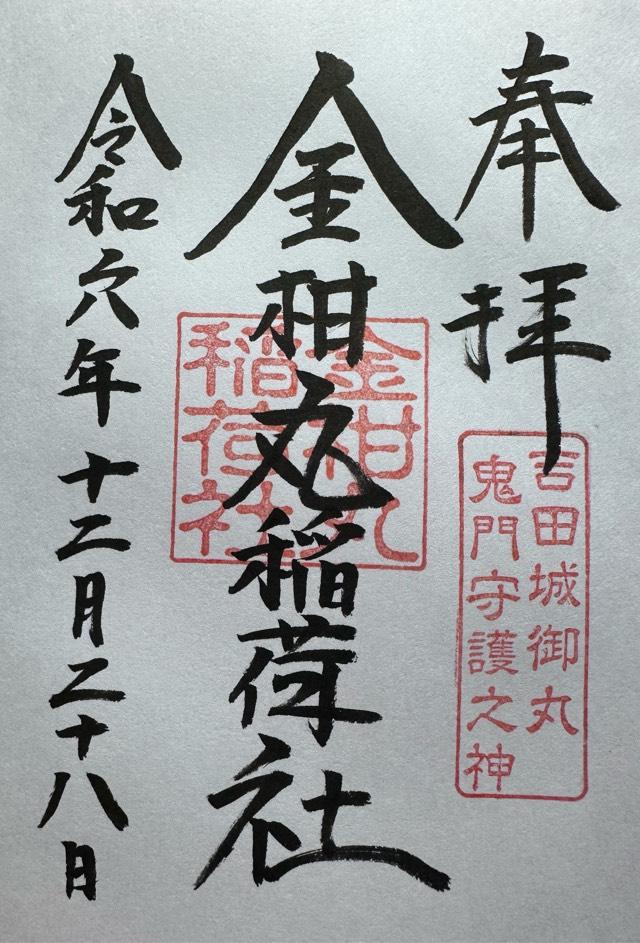 奉拝
吉田城御丸
鬼門守護之神
金柑丸稲荷社
金柑丸
稲荷社
令和六年十二月二十八日